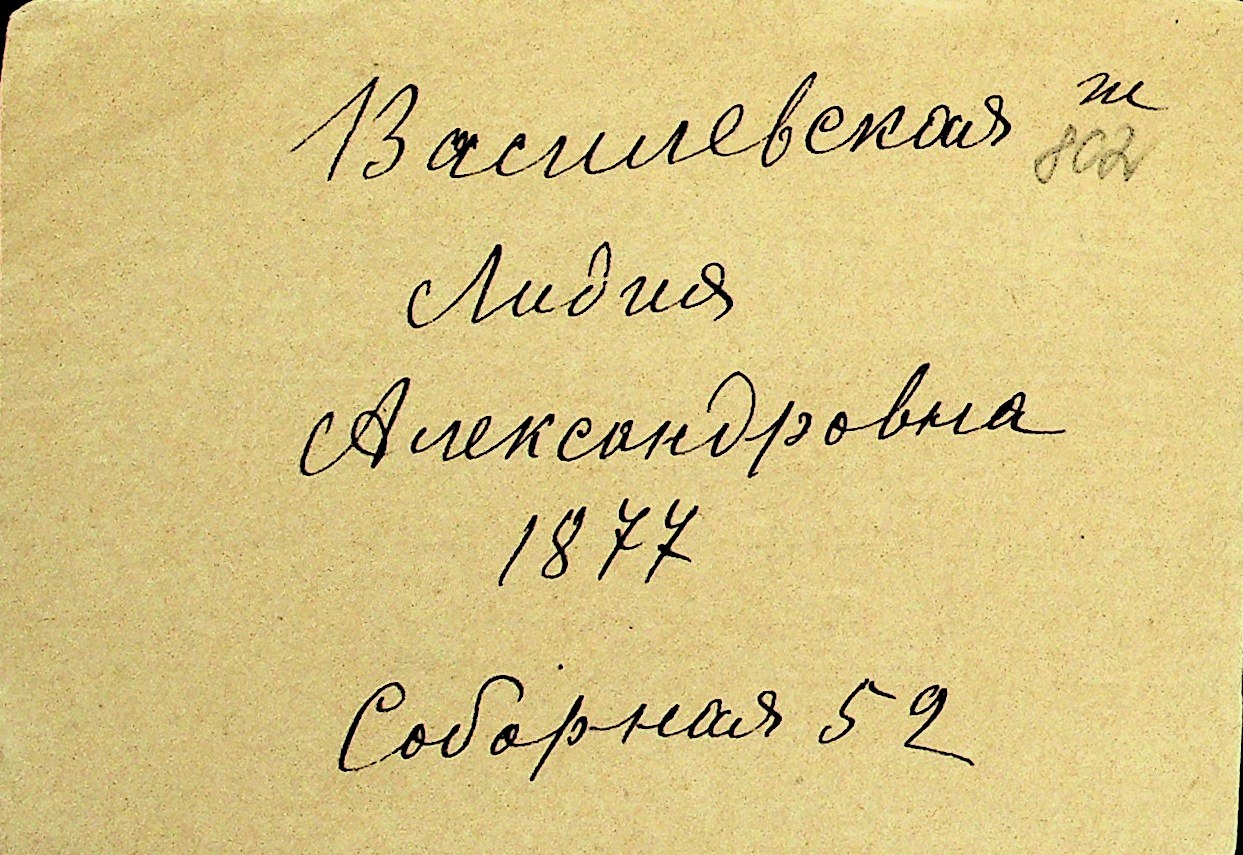 Василевская ж
802
Лидия
Александровна
1877
Соборная 52